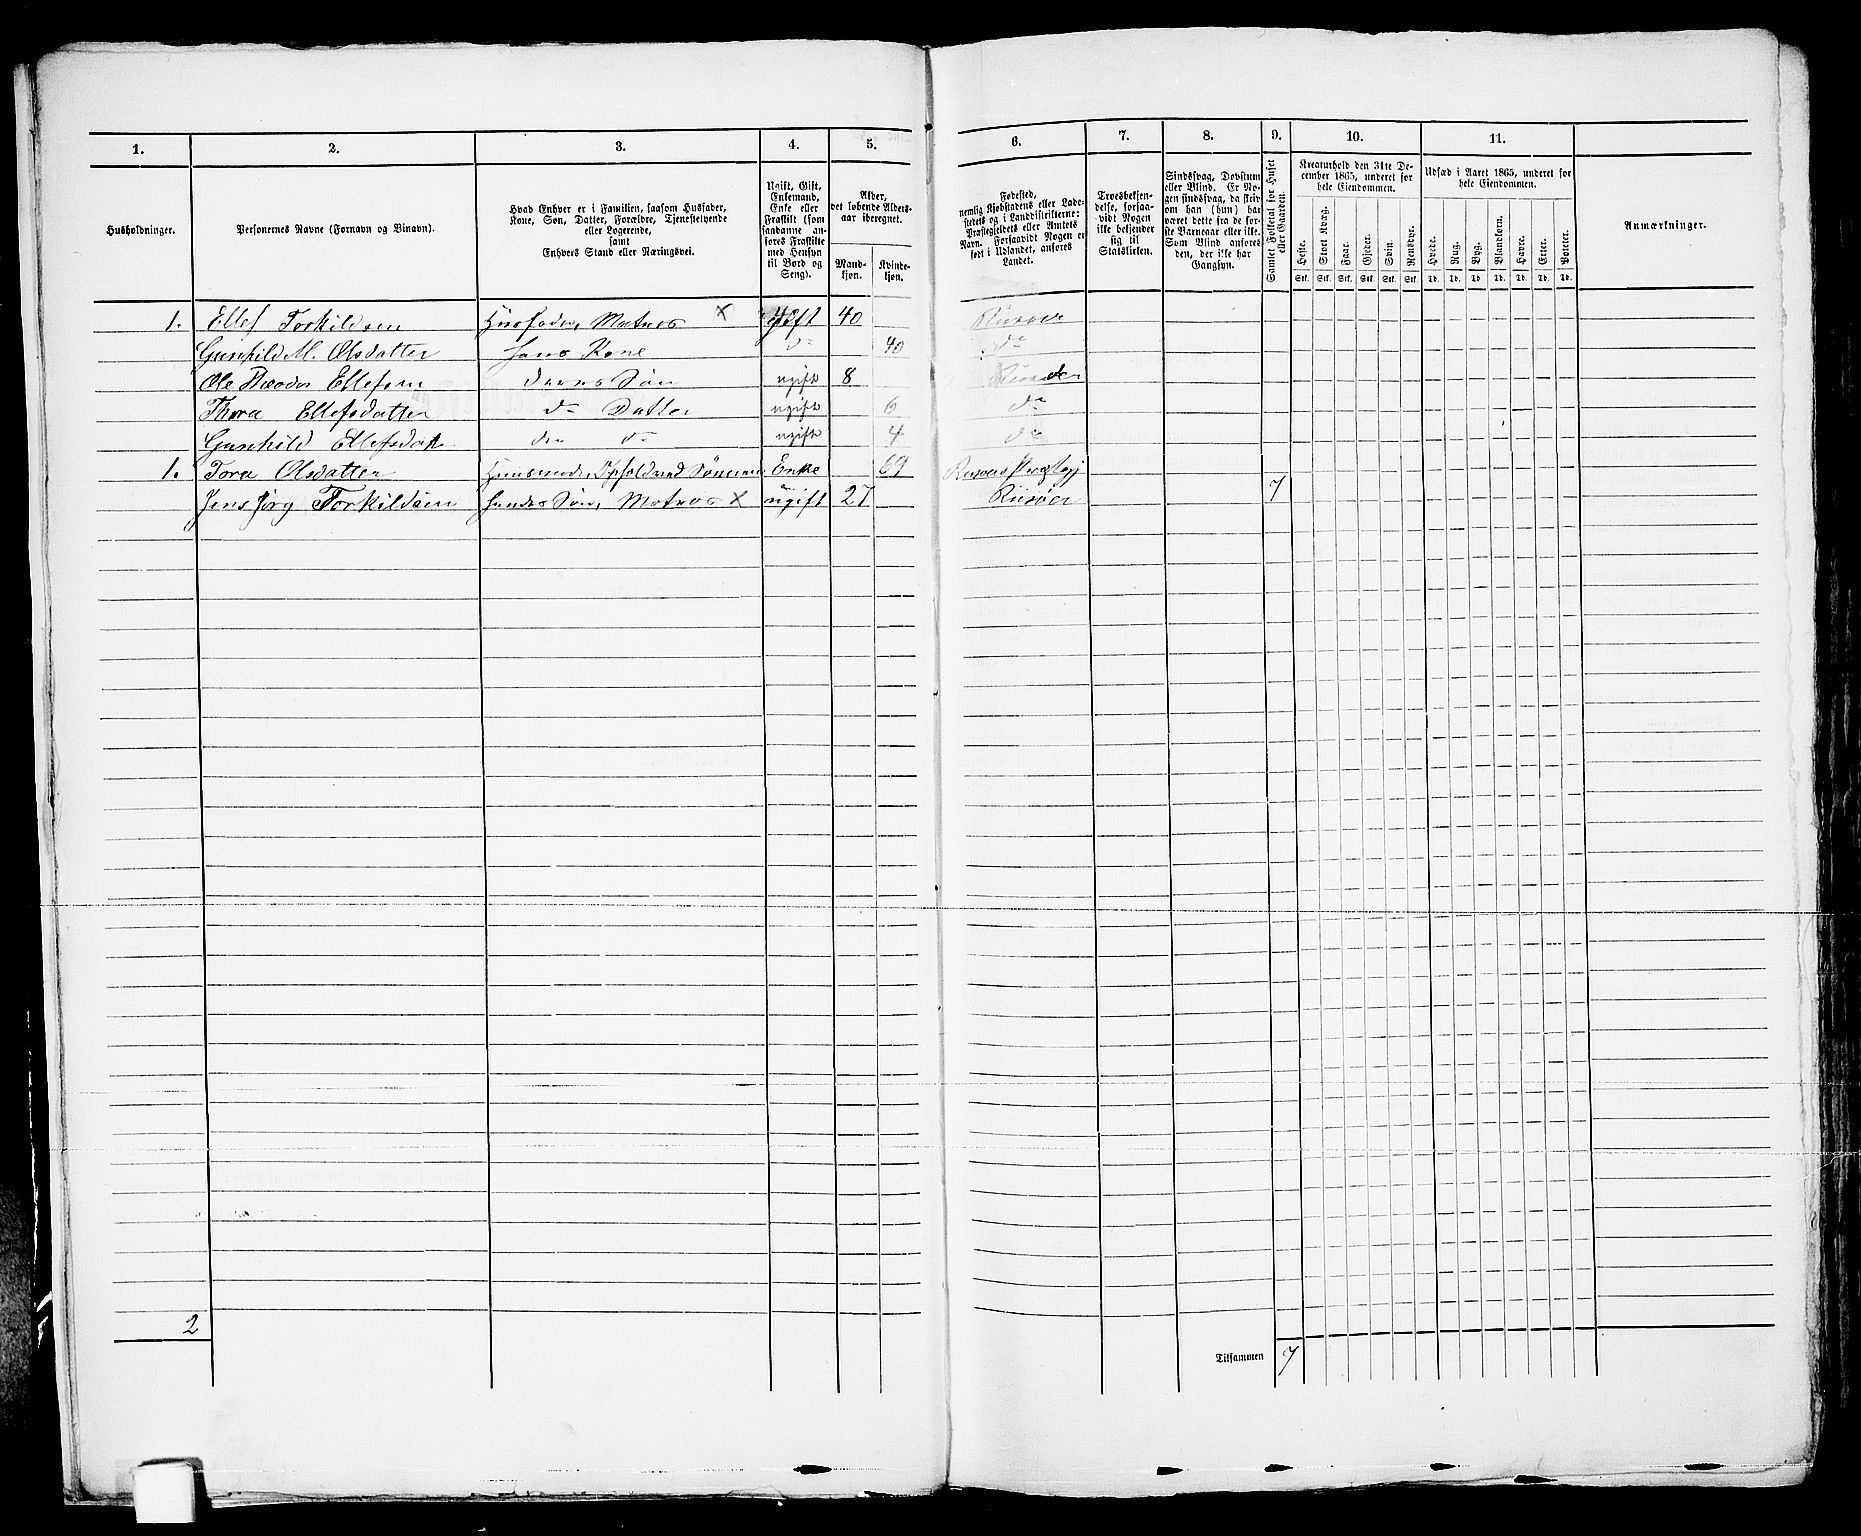 1. 2. 3. 4. 5. 6. 7. 8. 9. 10. 11.
Husholdninger.
Personernes Navne (Fornavn og Binavn).
Hvad Enhver er i Familien, saasom Husfader,
Kone, Søn, Datter, Forældre, Tjenestetyende
eller Logerende,
samt
Enhvers Stand eller Næringsvei.
Ugift, Gift,
Enkemand,
Enke eller
Fraskilt (som
saadanne an-
føres Fraskilte
med Hensyn
til Bord og
Seng).
Alder,
det løbende Alders-
aar iberegnet.
Mand-
kjøn.
Kvinde-
kjøn.
Fødested,
nemlig Kjøbstadens eller Lade-
stedets og i Landdistrikterne:
Præstegjeldets eller Amtets
Navn. Forsaavidt Nogen er
født i Udlandet, anføres
Landet.
Troesbekjen-
delse, forsaa-
vidt Nogen
ikke bekjender
sig til
Statskirken.
Sindssvag, Døvstum
eller Blind. Er No-
gen sindssvag, da skriv
om han (hun) har
været dette fra de før-
ste Barneaar eller ikke.
Som Blind anføres
den, der ikke har
Gangsyn.
Samlet Folketal for Huset
eller Gaarden.
Kreaturhold den 31te De-
cember 1865, underet for
hele Eiendommen.
Heste. Stort Kvæg. Faar. Gjeder. Svin. Rensdyr.
Stk. Stk. Stk. Stk. Stk. Stk.
Udsæd i Aaret 1865, underet for
hele Eiendommen.
Hvede. Rug. Byg. Blandkorn. Havre. Erter. Poteter.
Td. Td. Td. Td. Td. Td. Td.
Anmærkninger.
1. Ellef Torkildsen Husfader, Matros x gift 40
Gunhild M. Olsdatter hans Kone do 40 do
Ole Ellefsen deres Søn ugift 8
Thora Ellefsdatter do Datter ugift 6 do
Gunhild Ellefsdatt do do ugift 4 do
1. Tora Olsdatter Enke 69
Jens Jörg Torkildsen hendes Søn, Matros x ugift 27 Riisøer 7
2
Tilsammen 7